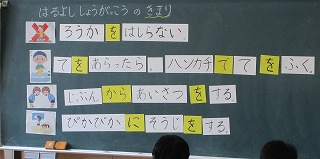 はるよししょうがっこう の きまり
ろうかをはしらない。
てをあらったら、ハンカチでてをふく。
じぶんからあいさつをする。
ぴかぴかにそうじをする。